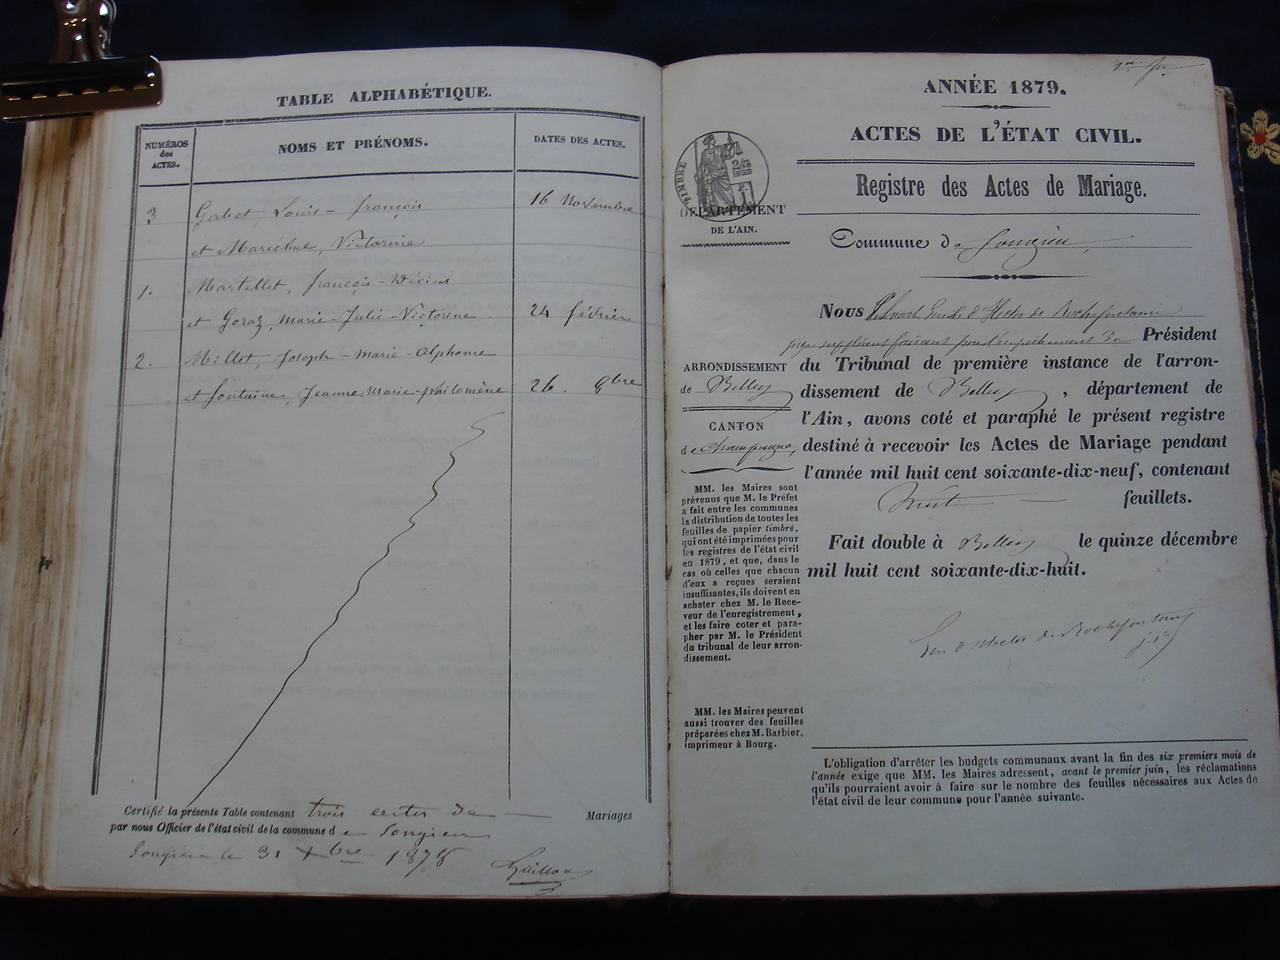 TABLE ALPHABÉTIQUE.
NUMÉROS
des
ACTES.
NOMS ET PRÉNOMS.
DATES DES ACTES.
3 Gabet, Louis-françois 16 Novembre
et Maréchal, Victorine
1. Martellet, françois-Décius
et Goraz, Marie-Julie-Victorine 24 février
2. Millet, Joseph-Marie-Alphonse
et fontaine, Jeanne Marie-philomène 26. 8bre
Certifié la présente Table contenant trois actes de Mariages
par nous Officier de l'état civil de la commune de Songieu
Songieu le 31 Xbre 1878
ANNÉE 1879.
ACTES DE L'ÉTAT CIVIL.
Registre des Actes de Mariage.
Commune de Songieu
TIMBRE
2/10
EN SUS
1 F.
DÉPARTEMENT
DE L'AIN.
ARRONDISSEMENT
de Belley
CANTON
de Champagne
MM. les Maires sont
prévenus que M. le Préfet
a fait entre les communes
la distribution de toutes les
feuilles de papier timbré,
qui ont été imprimées pour
les registres de l'état civil
en 1879, et que, dans le
cas où celles que chacun
d'eux a reçues seraient
insuffisantes, ils doivent en
acheter chez M. le Rece-
veur de l'enregistrement,
et les faire coter et para-
pher par M. le Président
du tribunal de leur arron-
dissement.
MM. les Maires peuvent
aussi trouver des feuilles
préparées chez M. Barbier,
imprimeur à Bourg.
Nous d'Hector de Rochefontaine
juge suppléant faisant pour l'empêchement du Président
du Tribunal de première instance de l'arron-
dissement de Belley, département de
l'Ain, avons coté et paraphé le présent registre
destiné à recevoir les Actes de Mariage pendant
l'année mil huit cent soixante-dix-neuf, contenant
huit feuillets.
Fait double à Belley le quinze décembre
mil huit cent soixante-dix-huit.
d'Hector de Rochefontaine
L'obligation d'arrêter les budgets communaux avant la fin des six premiers mois de
l'année exige que MM. les Maires adressent, avant le premier juin, les réclamations
qu'ils pourraient avoir à faire sur le nombre des feuilles nécessaires aux Actes de
l'état civil de leur commune pour l'année suivante.